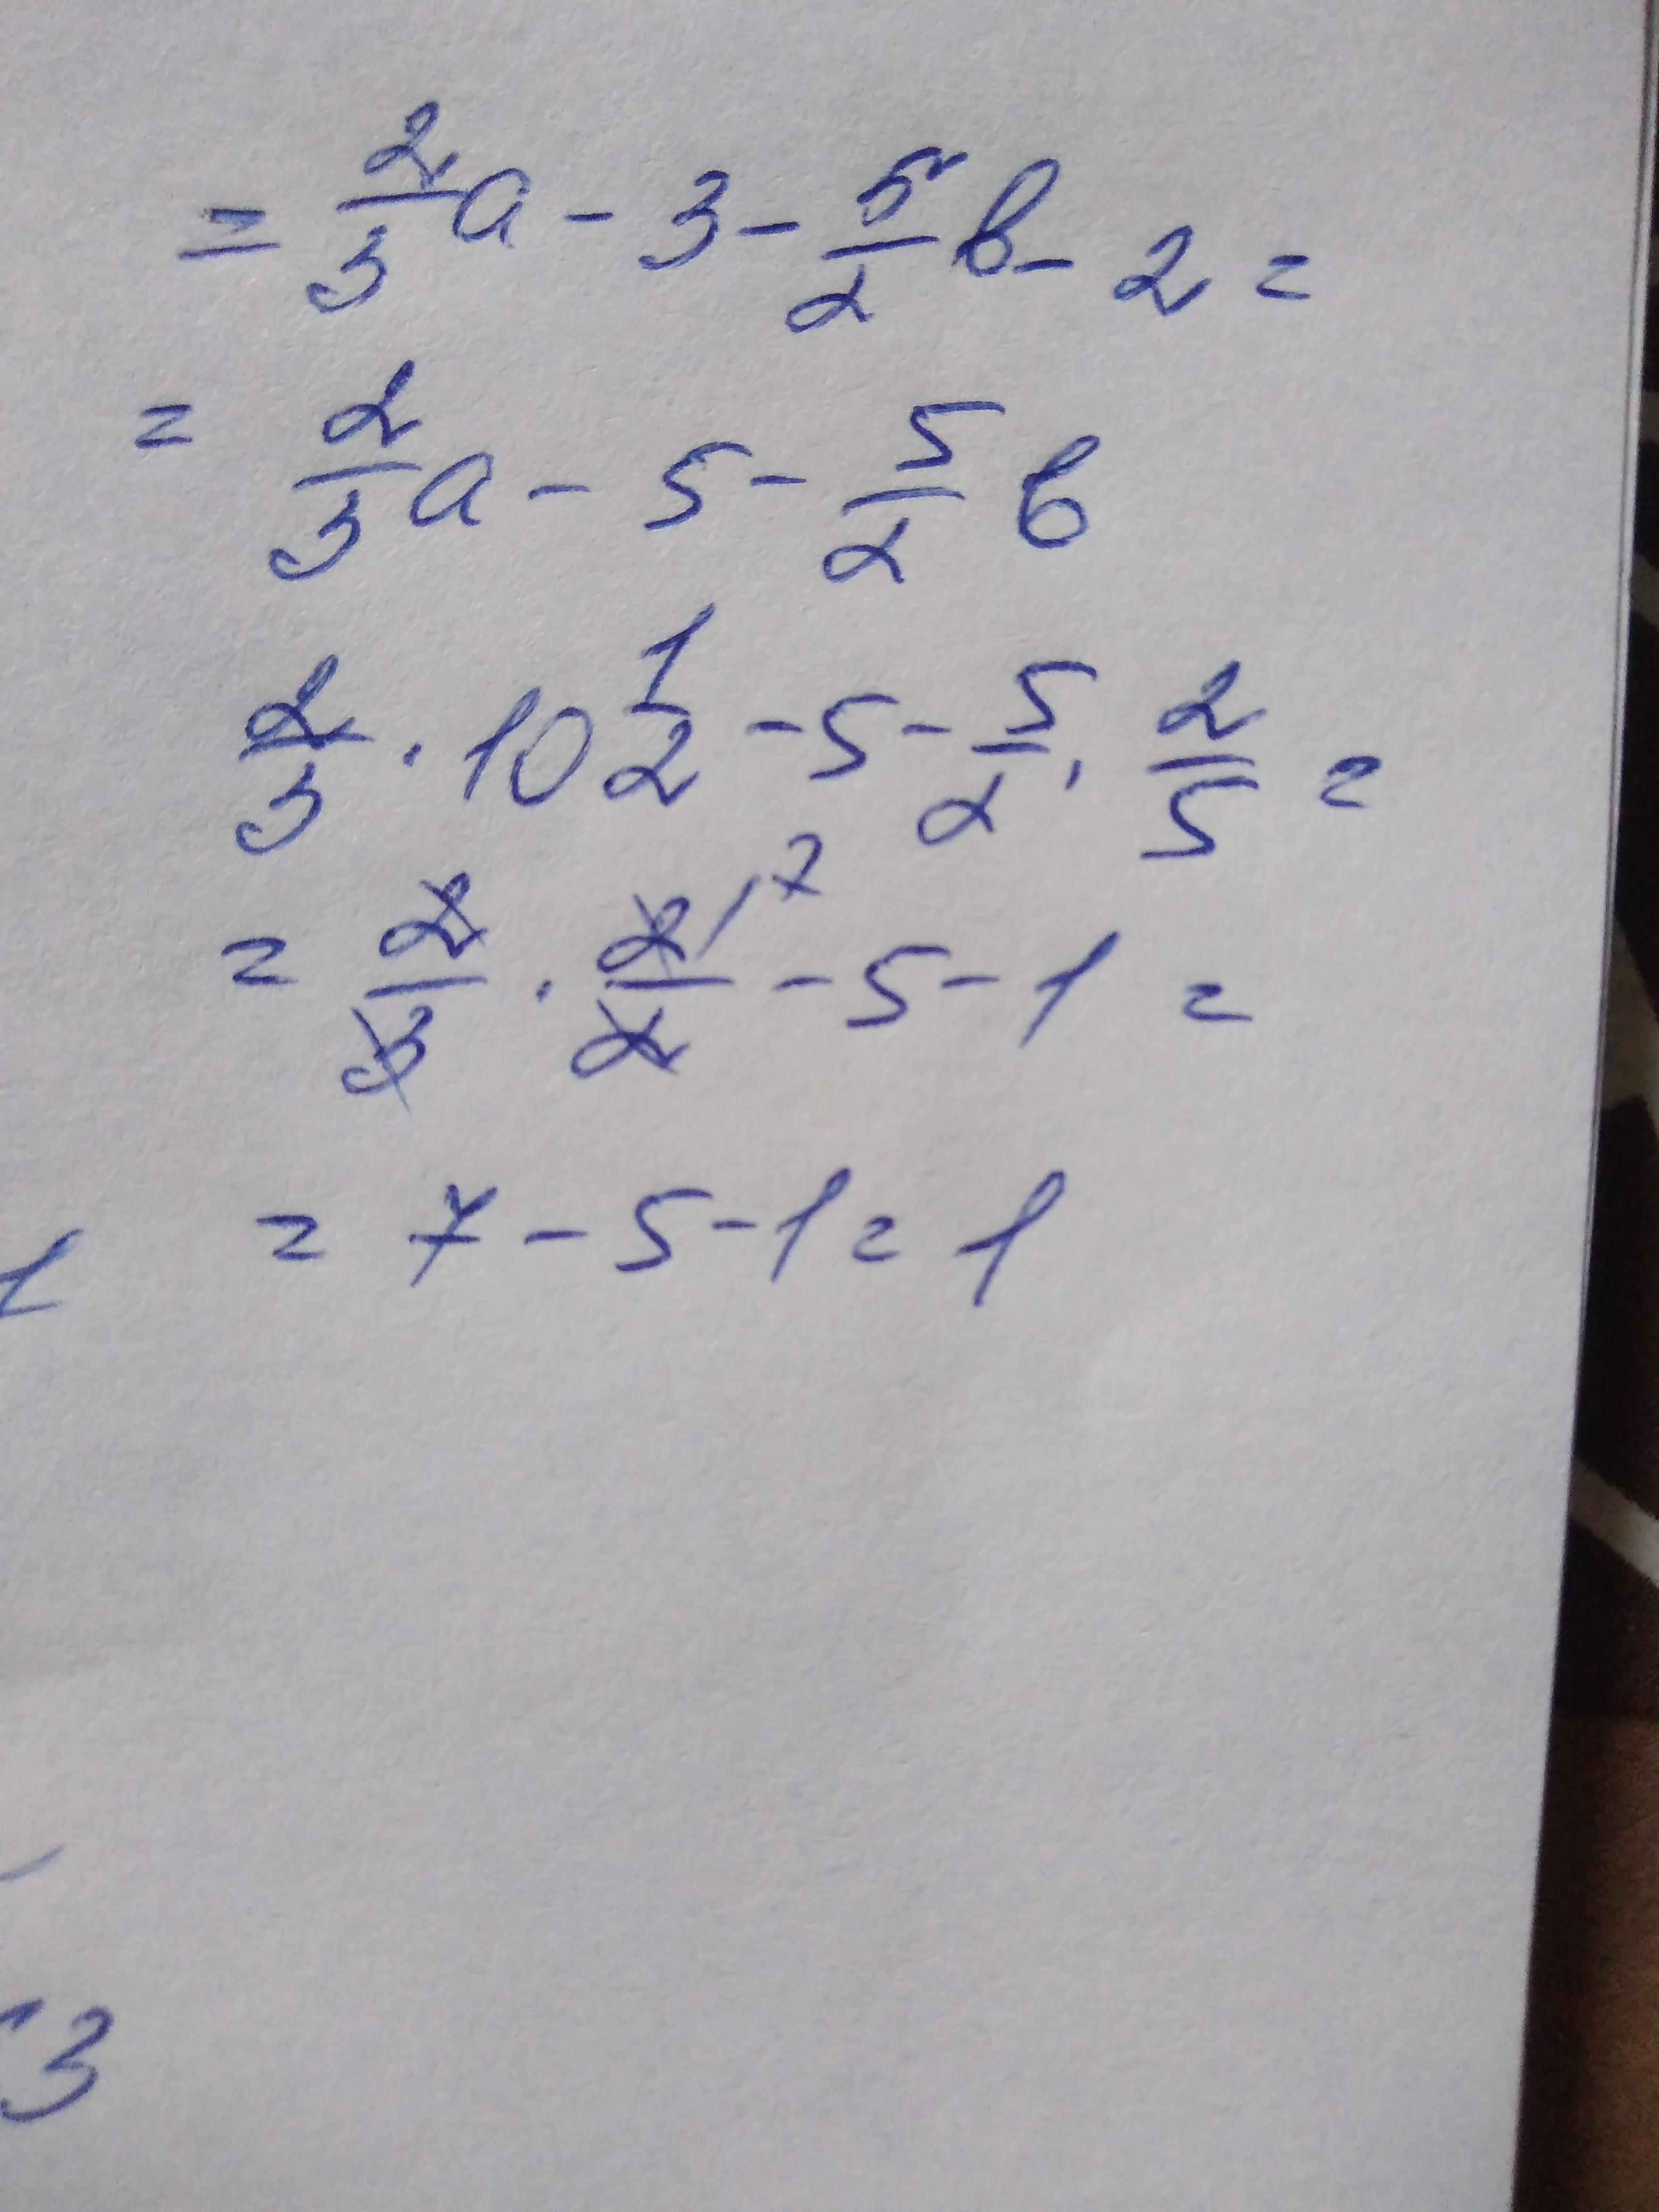 = 2/3 a - 3 - 5/2 b - 2 =
= 2/3 a - 5 - 5/2 b
2/3 · 10 1/2 - 5 - 5/2 · 2/5 =
= 2/3 · 21/2 7 - 5 - 1 =
= 7 - 5 - 1 = 1
3